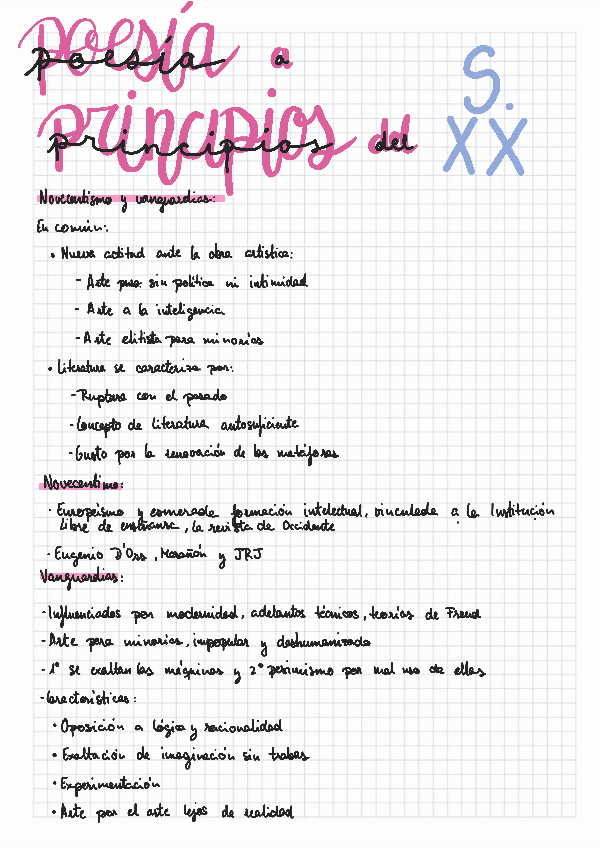 poesía a
principios del S. XX
Novecentismo y vanguardias:
En común:
• Nueva actitud ante la obra artística:
- Arte puro sin política ni intimidad
- Arte a la inteligencia
- Arte elitista para minorías
• Literatura se caracteriza por:
- Ruptura con el pasado
- Concepto de literatura autosuficiente
- Gusto por la renovación de las metáforas
Novecentimo:
· Europeísmo y esmerada formación intelectual, vinculada a la Institución
libre de enseñanza, la revista de Occidente
- Eugenio D'Ors, Marañón y JRJ
Vanguardias:
- Influenciados por modernidad, adelantos técnicos, teorías de Freud
- Arte para minorías, impopular y deshumanizado
- 1º se exaltan las máquinas y 2º pesimismo por mal uso de ellas
- Características:
• Oposición a lógica y racionalidad
• Exaltación de imaginación sin trabas
• Experimentación
• Arte por el arte lejos de realidad